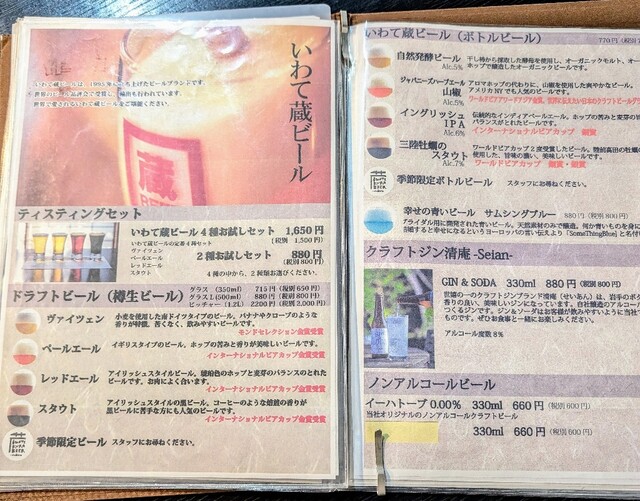 いわて蔵ビール
いわて蔵ビールは、1995年に立ち上げたビールブランドです。
世界のビール品評会で受賞し、輸出も行われています。
世界で愛されるいわて蔵ビールをご堪能ください。
蔵
ティスティングセット
いわて蔵ビール4種お試しセット 1,650円
(税別 1,500円)
いわて蔵ビールの定番4種セット
ヴァイツェン
ペールエール
レッドエール
スタウト
2種お試しセット 880円
(税別 800円)
4種の中から、2種類お選びください。
ドラフトビール（樽生ビール）
グラス (350ml) 715円(税別650円)
グラスL(500ml) 880円(税別800円)
ピッチャー(1.2l) 2200円(税別2,000円)
ヴァイツェン
小麦を使用した南ドイツタイプのビール。バナナやクローブのような
香りが特徴。苦くなく、飲みやすいビールです。
モンドセレクション金賞受賞
ペールエール
イギリスタイプのビール、ホップの苦みと香りが美味しいビールです。
インターナショナルビアカップ金賞受賞
レッドエール
アイリッシュスタイルビール、琥珀色のホップと麦芽のバランスのとれた
ビールです。お肉によく合います。
インターナショナルビアカップ金賞受賞
スタウト
アイリッシュスタイルの黒ビール。コーヒーのような焙煎の香りが
黒ビールに苦手な方にも人気のビールです。
インターナショナルビアカップ金賞受賞
季節限定ビール スタッフにお尋ねください。
いわて蔵ビール（ボトルビール）
770円(税別7
自然発酵ビール
Alc.5%
干し柿から採取した酵母を使用し、オーガニックモルト、オー
ホップで醸造したオーガニックビールです。
ジャパニーズハーブエール
山椒
Alc.5%
アロマホップの代わりに、山椒を使用した爽やかなビール。
アメリカNYでも人気のビールです。
イングリッシュ
IPA
Alc.6%
伝統的なインディアペールエール。ホップの苦みと麦芽の旨
バランスがとれたビールです。
インターナショナルビアカップ 銀賞
三陸牡蠣の
スタウト
Alc.7%
ワールドビアカップ2度受賞したビール。陸前高田の牡蠣
使用した、旨味の濃い、美味しいビールです。
ワールドビアカップ 銀賞・銅賞
季節限定ボトルビール スタッフにお尋ねください。
幸せの青いビール サムシングブルー 880円(税別800円)
ブライダル用に開発された青いビール。天然素材のみで醸造。何か青いものを身に
結婚すると幸せになるというヨーロッパの言い伝えより「SomeThingBlue」と名付
クラフトジン清庵 -Seian-
GIN & SODA 330ml 880円(税別800円)
アルコール度数8%
ノンアルコールビール
イーハトーブ 0.00% 330ml 660円(税別600円)
当社オリジナルのノンアルコールクラフトビール
330ml 660円(税別600円)